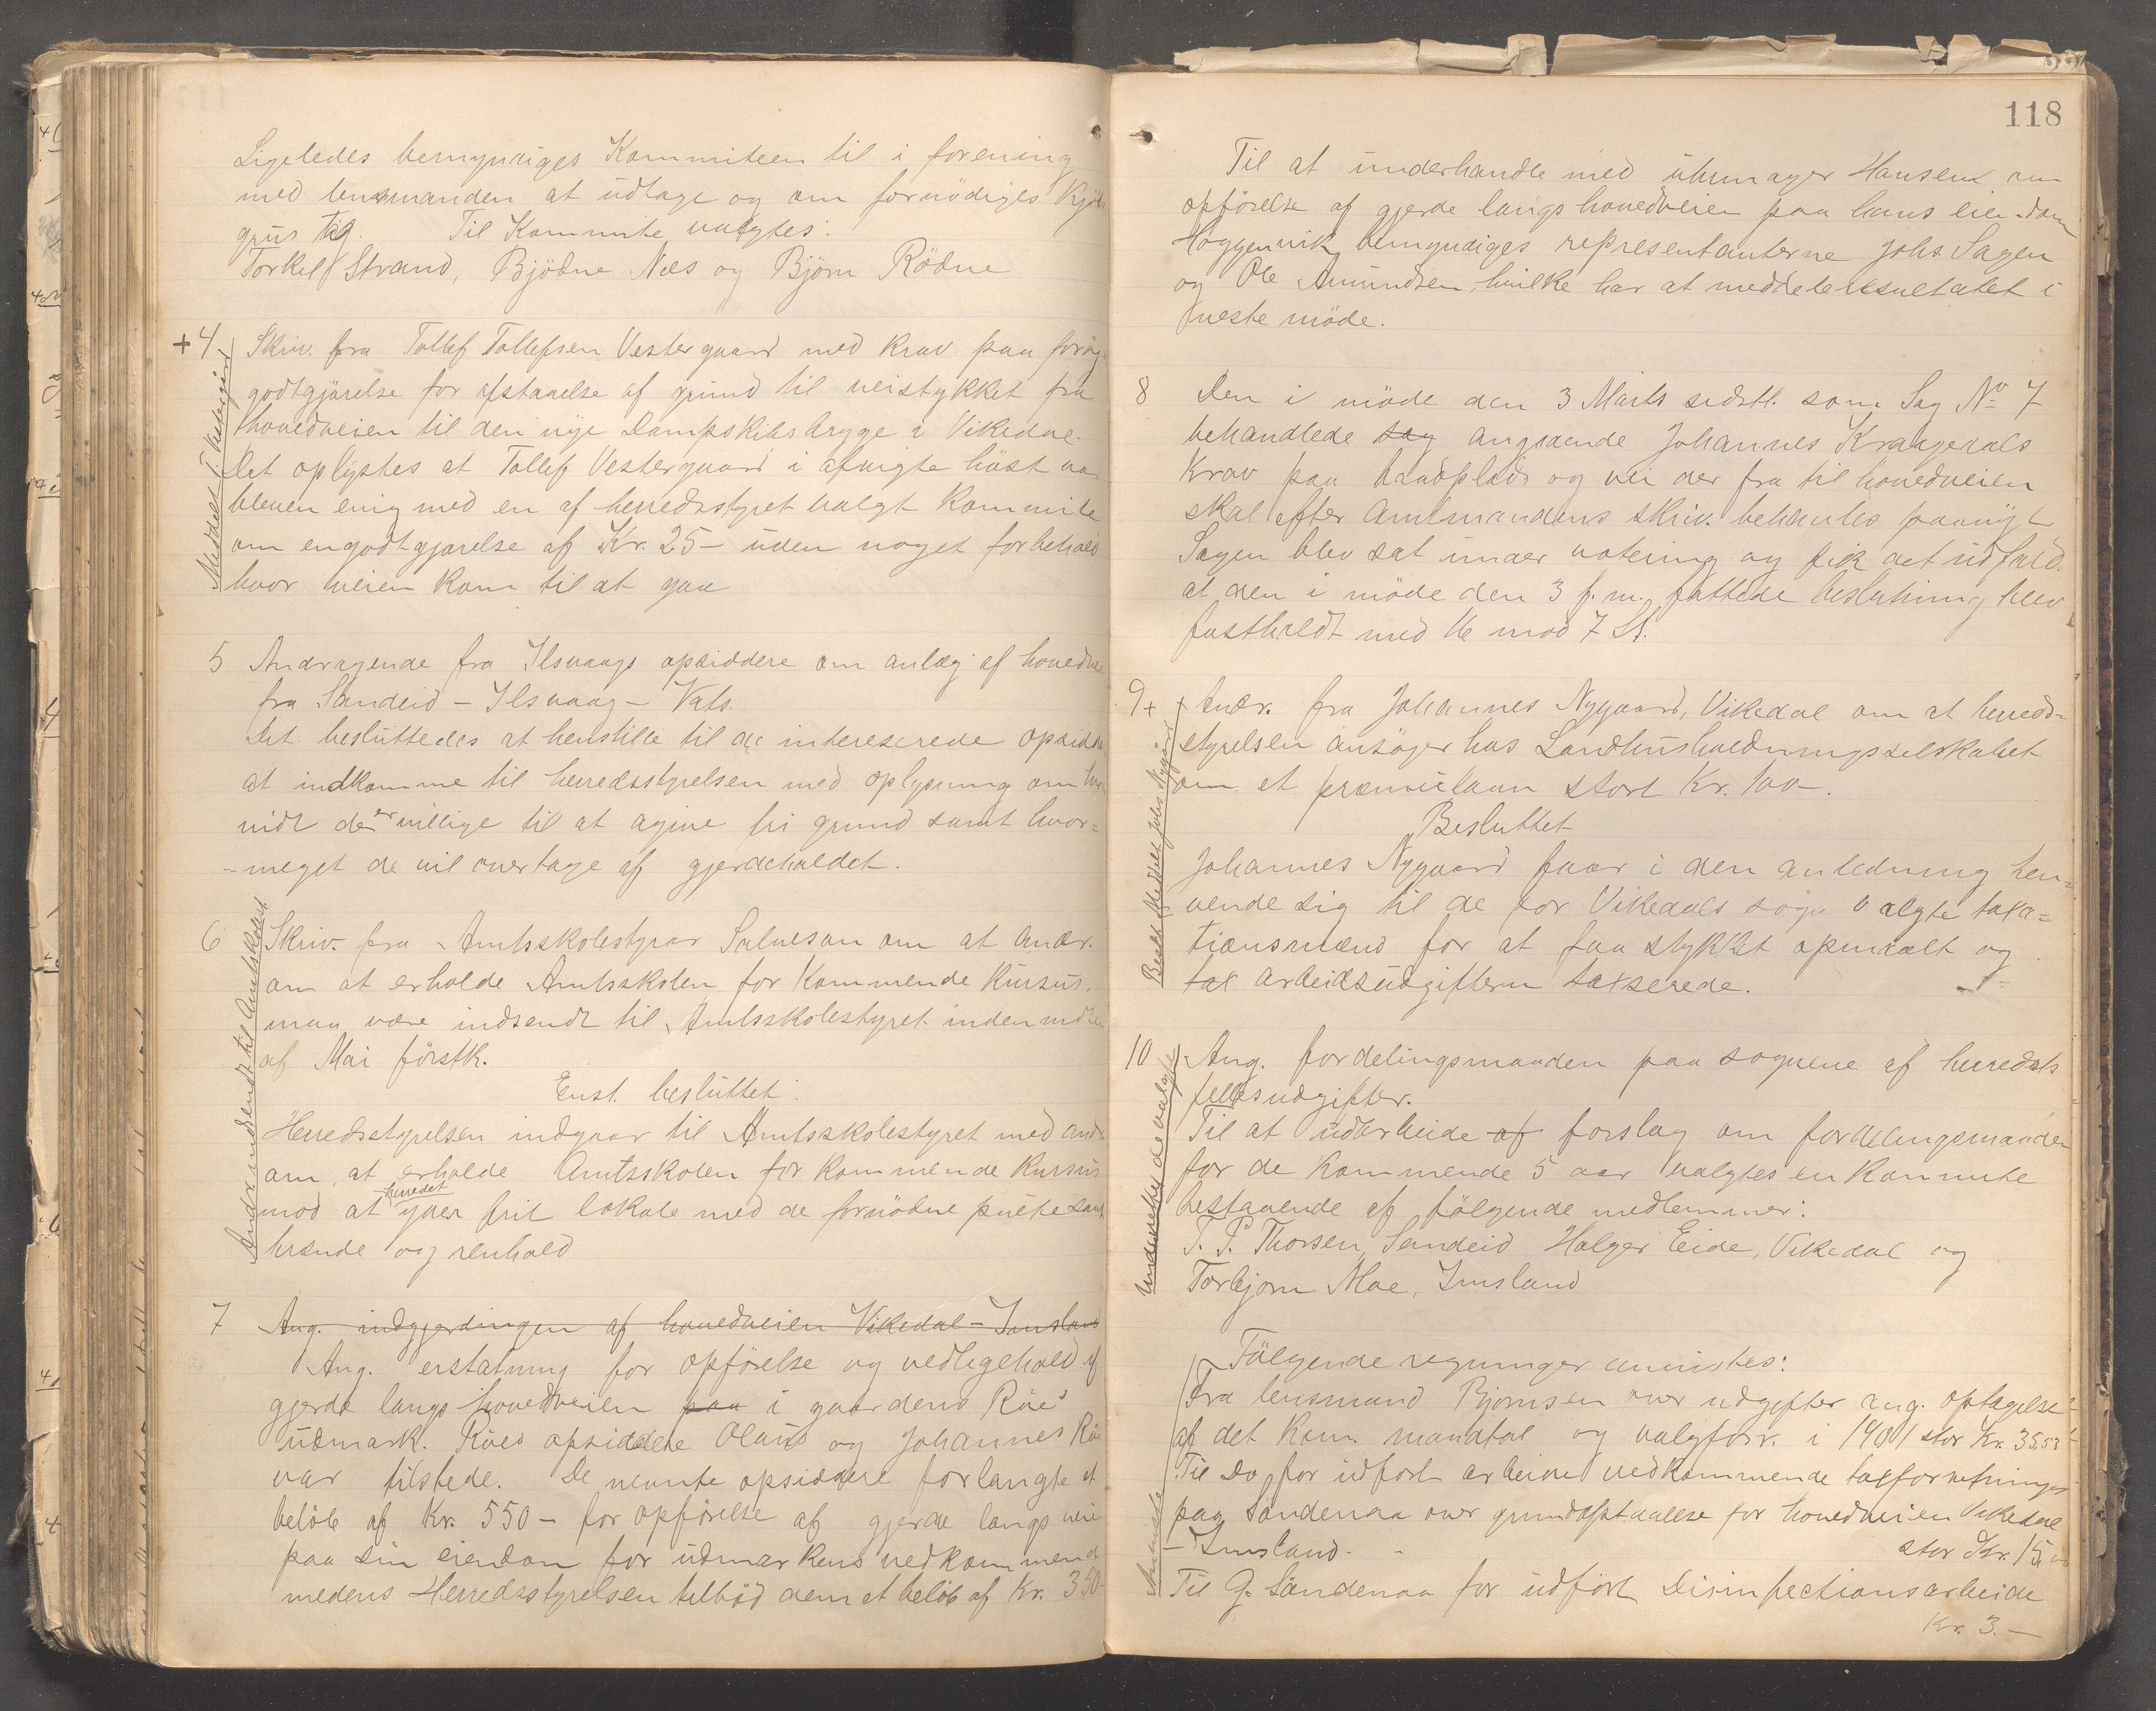 Ligeledes bemyndiges Kommiteen til i forening
med lensmanden at udtage og om fornödiges Kjöbe
grus tag. Til Kommite valgtes:
Torkel Strand, Bjödne Næs og Björn Rödne
+4 Skriv. fra Tollef Tollefsen Vestergaard med krav paa forög
godtgjörelse for afstaaelse af grund til veistykket fra
hovedveien til den nye Dampskibsbrygge i Vikedal.
Det oplystes at Tollef Vestergaard i afvigte höst var
bleven enig med en af herredsstyret valgt Kommite
om en godtgjörelse af Kr. 25- uden noget forbehold
hvor veien kom til at gaa
Meddelt T. Vestergård
5 Andragende fra Ilsvaags opsiddere om anlæg af hovedvei
fra Sandeid - Ilsvaag - Vats.
Det besluttedes at henstille til de interesserede opsidde
at indkomme til herredsstyrelsen med oplysning om hvor
vidt de er villige til at agive fri grund samt hvor=
-meget de vil overtage af gjerdeholdet.
6 Skriv. fra Amtsskolestyrer Salvesen om at andr.
om at erholde Amtsskolen for kommende Kursus,
maa være indsendt til Amtsskolestyret inden midten
af Mai förstk.
Enst. besluttet:
Herredsstyrelsen indgaar til Amtsskolestyret med andr
om at erholde Amtsskolen for kommende Kursus
mod at herredet yder frit lokale med de fornödne pulte samt
brænde og renhold
Andr. indsendt til Amtsskolest
7 Ang. indgjerdingen af hovedveien Vikedal - Imsland
Ang. erstatning for opförelse og vedligehold af
gjerde langs hovedveien paa i gaardens Röes
udmark. Röes opsiddere Olaus og Johannes Rö
var tilstede. De nevnte opsiddere forlangte et
belöb af Kr. 550 - for opförelse af gjerde langs veie
paa sin eiendom for udmarkens vedkommende
medens Herredsstyrelsen tilböd dem et belöb af Kr. 350
118
Til at underhandle med uhrmager Hansen om
opförelse af gjerde langs hovedveien paa hans eiendom
Höggenvik bemyndiges representanterne Johs. Sagen
og Ole Amundsen, hvilke har at meddele resultatet i
neste möde.
8 Den i möde den 3 Marts sidstl. som Sag No 7
behandlede sag angaaende Johannes Krangedals
Krav paa baadplads og vei der fra til hovedveien
skal efter Amtmandens skriv. behandles paanyt
Sagen blev sat under votering og fik det udfald.
at den i möde den 3 f. m. fattede beslutning blev
fastholdt med 16 mod 7 St.
9+ Andr. fra Johannes Nygaard, Vikedal om at herreds=
styrelsen ansöger hos Landhusholdningsselskabet
om et præmielaan stort Kr. 100-.
Besluttet
Johannes Nygaard faar i den anledning hen=
vende sig til de for Vikedals sogn valgte taxa=
tionsmænd for at faa stykket opmaalt og
tax arbeidsudgiftern taxserede.
Beslt. Meddelt Johs Nygård
10 Ang. fordelingsmaaden paa sognene af herredets
fellesudgifter.
Til at udarbeide af forslag om fordelingsmaaden
for de kommende 5 aar valgtes en Kommite
bestaaende af fölgende medlemmer:
T. P. Thorsen, Sandeid Holger Eide, Vikedal og
Torbjörn Moe, Imsland
Underrettet de valgte
Fölgende regninger anvistes:
Fra lensmand Bjornsen over udgifter ang. optagelse
af det kom. mandtal og valgforr. i 1901 stor Kr. 35,53
Til Do for udfört arbeide vedkommende taxforretninger
paa Söndenaa over grundafstaaelse for hovedveien Vikedal
- Imsland. stor Kr. 15,00
Til G. Söndenaa for udfört Disinfectionsarbeide
Kr. 3.-
Anvendte